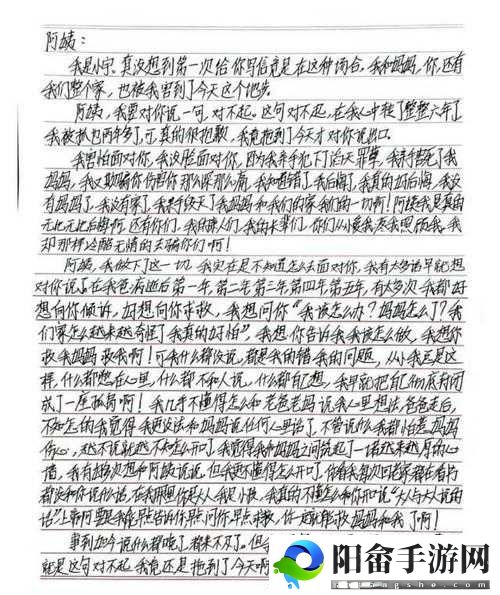 阿姨：
我是小宇。真没想到第一次给你写信竟是在这种场合。我和妈妈，你，还有
我们整个家，也被我害到了今天这个地步。
阿姨，我要对你说一句，对不起。这句对不起，在我心中转了整整六年了
我被抓也两年多了，可真的很抱歉，我竟拖到了今天才对你说出口。
我害怕面对你，我没脸面对你，因为我亲手犯下了滔天罪孽，我亲手害死了我
妈妈，我又欺骗你伤害你那么深那么痛，我知道错了我后悔了，我真的好后悔，我没
有妈妈了，我没有家了，我亲手毁了我妈妈和我们的家我们的一切啊！阿姨我是真的
无比无比后悔啊，还有你们，我的亲人们，我的长辈们，你们从小爱我养我照顾我，我
却那样冷酷无情的去骗你们啊！
阿姨，我做下了这一切，我实在是不知道怎么去面对你，我有太多话早就想
对你说了。在我爸病逝后第一年，第二年，第三年，第四年，第五年，有太多次我都好
想向你倾诉，好想向你求救，我想问你“我该怎么办？妈妈怎么了？我
们家怎么越来越奇怪了我真的好怕”，我想你告诉我我该怎么做，我想你
救我妈妈救我啊！可我什么都没说，都是我的错我的问题，从小我总是这
样，什么都憋在心里，什么都不和人说，什么都自己想，我早就把自己彻底封闭
成了一座孤岛啊！我几乎不懂得怎么和老爸老妈说我心里想法，爸爸走后，
不知怎的我觉得我更没法和妈妈说任何心里话了，不管说什么我都怕惹妈妈
伤心，越不说就越不知怎么开口了，我觉得我和妈妈之间筑起了一堵越来越厚的心
墙，我有好多次想和阿姨说说，但我更不懂得怎么开口了，
都没和你说什么话，在我眼里你是大人我是小孩，我真的不懂怎么和你们说“大人与大人说的
话”上啊，阿 要是我能早点告诉你早点问你早点求救，你一定就能救妈妈和我了啊！
事到如今说什么都晚了，都来不及了。但
就是这句对不起，我竟还是拖到了今天啊
阳畲手游网